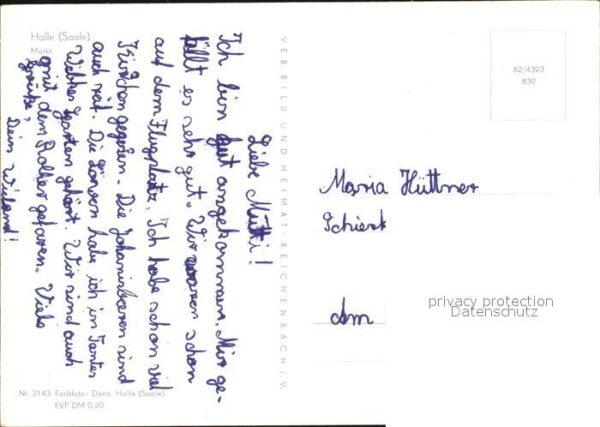 Halle (Saale)
Markt
Liebe Mutti!
Ich bin gut angekommen. Mir ge-
fällt es sehr gut. Wir waren schon
auf dem Flugplatz. Ich habe schon viel
Kirschen gegesen. Die Johanisbeeren sind
auch Die habe ich in Tantes
Garten gehört. Wir sind auch
mit dem Roller gefaren. Viele
grüße,
Dein Wieland!
Nr. 2143 Farbfoto: Danz, Halle (Saale)
EVP DM 0,20
VEB BILD UND HEIMAT REICHENBACH I. V.
62/4393
839
Maria Hüttner
Schierk
Am
privacy protection
Datenschutz